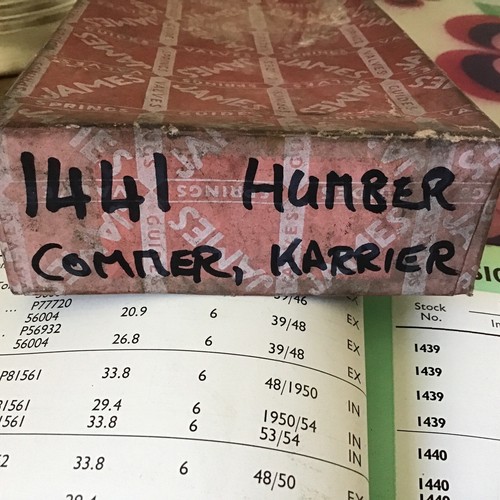 JAMES
VALVES
SPRINGS
GUIDES
1441 HUMBER
COMMER, KARRIER
39/46
... P77720
56004 20.9 6 39/48 EX
... P56932
56004 26.8 6 39/48 EX
P81561 33.8 6 48/1950 IN
81561 29.4 6 1950/54 IN
1561 33.8 6 53/54 IN
2 33.8 6 48/50
29.4
Stock
No.
1439
1439
1439
1439
1440
1440
1440